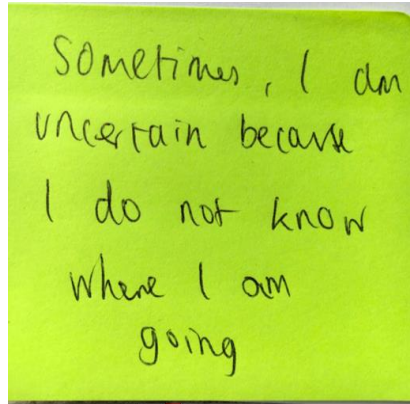 Sometimes, I am
uncertain because
I do not know
where I am
going